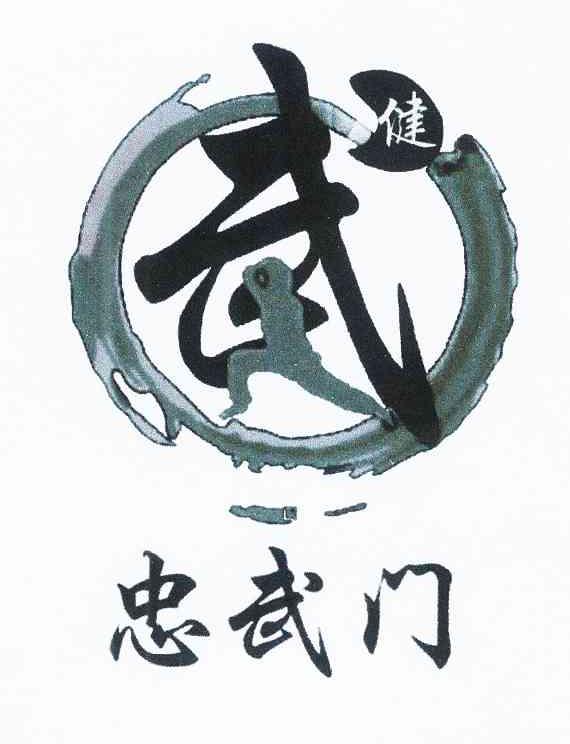 武
健
忠武门